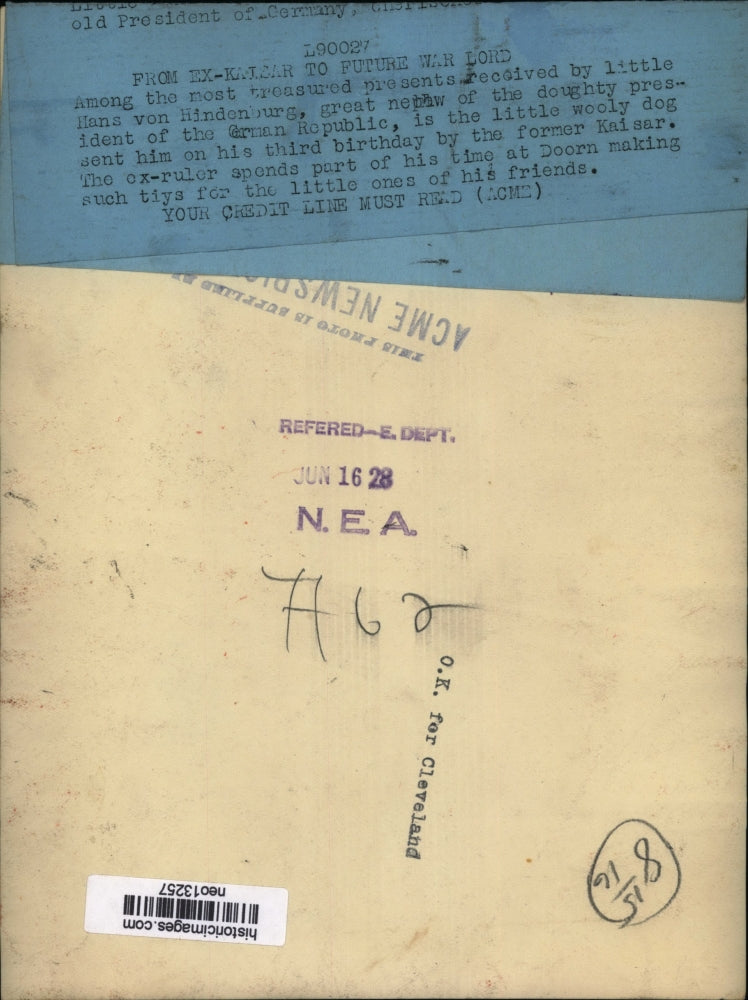 old President of Germany,
L90027
FROM EX-KAISAR TO FUTURE WAR LORD
Among the most treasured presents received by little
Hans von Hindenburg, great nephw of the doughty pres-
ident of the Grman Republic, is the little wooly dog
sent him on his third birthday by the former Kaisar.
The ex-ruler spends part of his time at Doorn making
such tiys for the little ones of his friends.
YOUR CREDIT LINE MUST READ (ACME)
THIS PHOTO IS SUPPLIED BY
ACME
REFERED-E. DEPT.
JUN 16 28
N. E. A.
O.K. for Cleveland
historicimages.com
neo13257